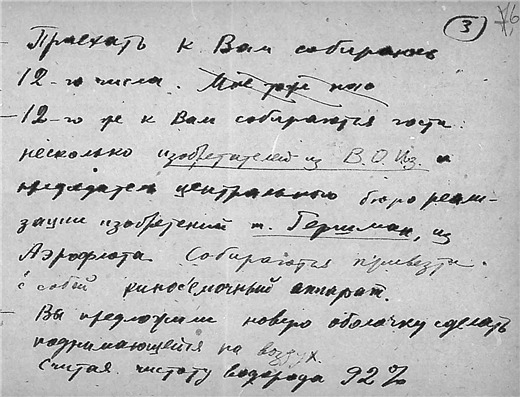 3
76
Приехать к Вам собираюсь
12-го числа.
12-го же к Вам собираются гости:
несколько изобретателей из В.О.Из. и
председатель центрального бюро реали-
зации изобретений т. Гершман, из
Аэрофлота. Собираются привезти
с собой киносъемочный аппарат.
Вы предложили новую оболочку сделать
поднимающейся на воздух.
Считая чистоту водорода 92%